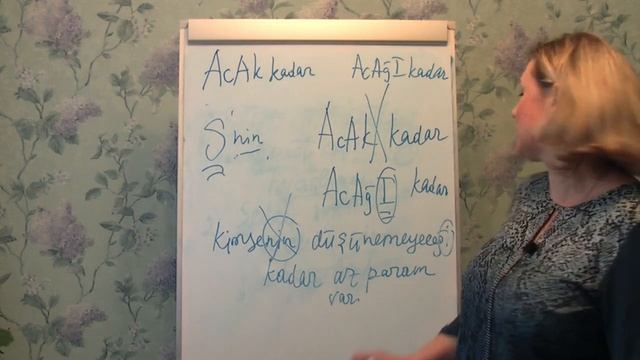 AcAk kadar AcAğI kadar
S'nin AcAk kadar
AcAğI kadar
kimsenin düşünemeyeceği
kadar az param
var.